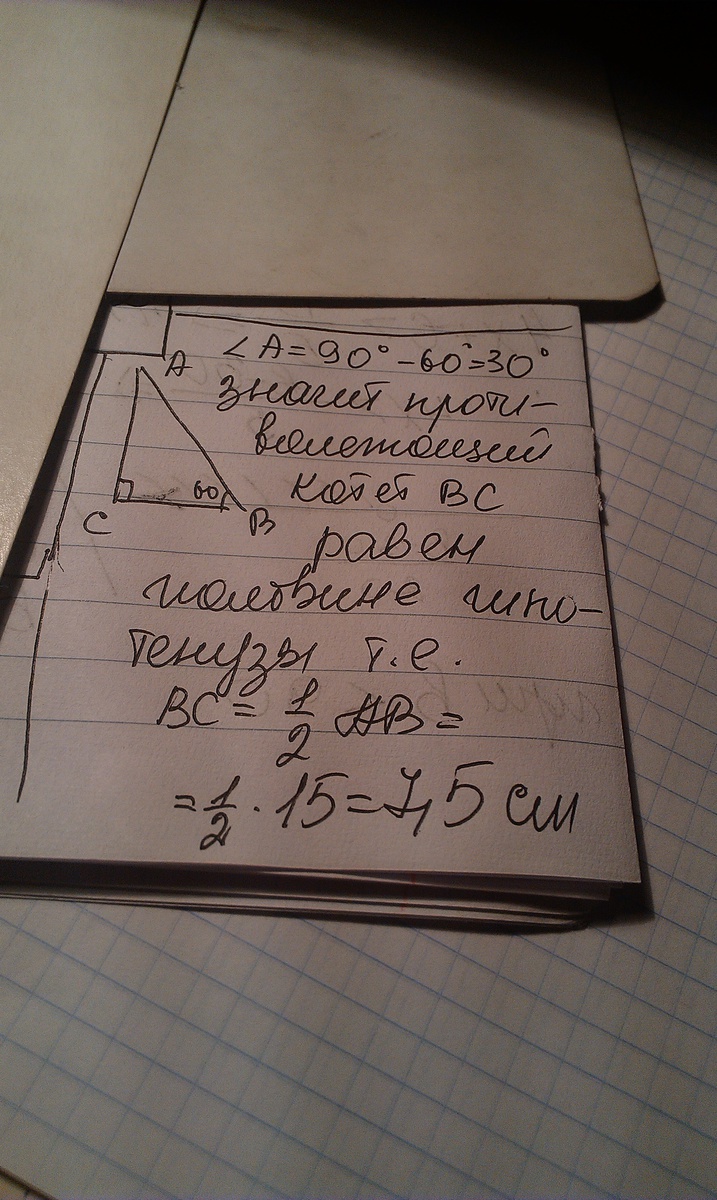 ∠A = 90° - 60° = 30°
A
значит проти-
волежащий
60
катет BC
C
B
равен
половине гипо-
тенузы т.е.
BC = 1/2 AB =
= 1/2 · 15 = 7,5 см